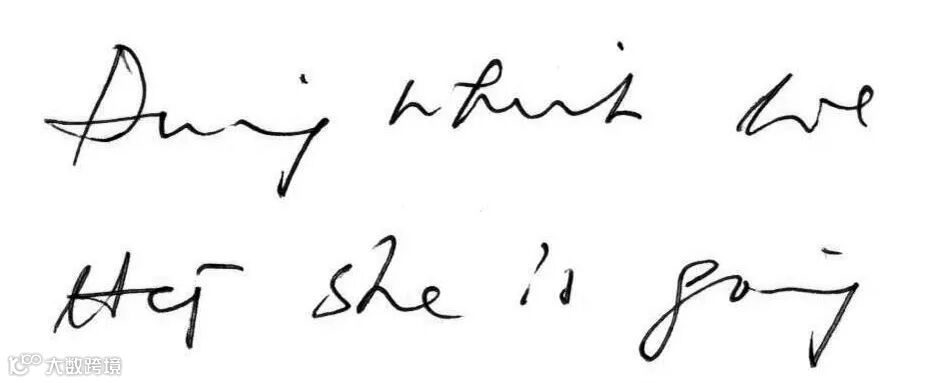 During which we
that she is going
大数跨境